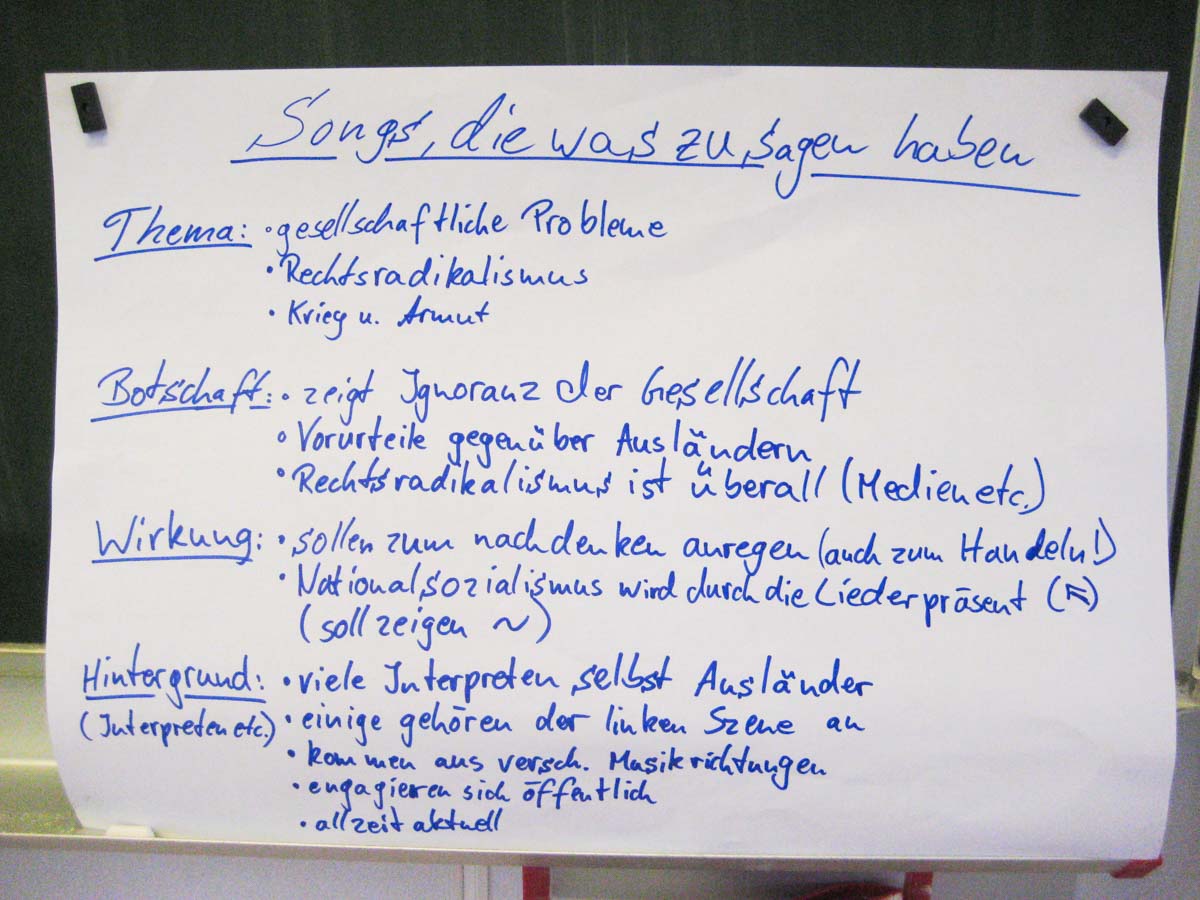 Songs, die was zu sagen haben
Thema: • gesellschaftliche Probleme
• Rechtsradikalismus
• Krieg u. Armut
Botschaft: • zeigt Ignoranz der Gesellschaft
• Vorurteile gegenüber Ausländern
• Rechtsradikalismus ist überall (Medien etc.)
Wirkung: • sollen zum nachdenken anregen (auch zum Handeln!)
• Nationalsozialismus wird durch die Lieder präsent (↖)
(soll zeigen ~)
Hintergrund: • viele Interpreten selbst Ausländer
(Interpreten etc.) • einige gehören der linken Szene an
• kommen aus versch. Musikrichtungen
• engagieren sich öffentlich
• allzeit aktuell